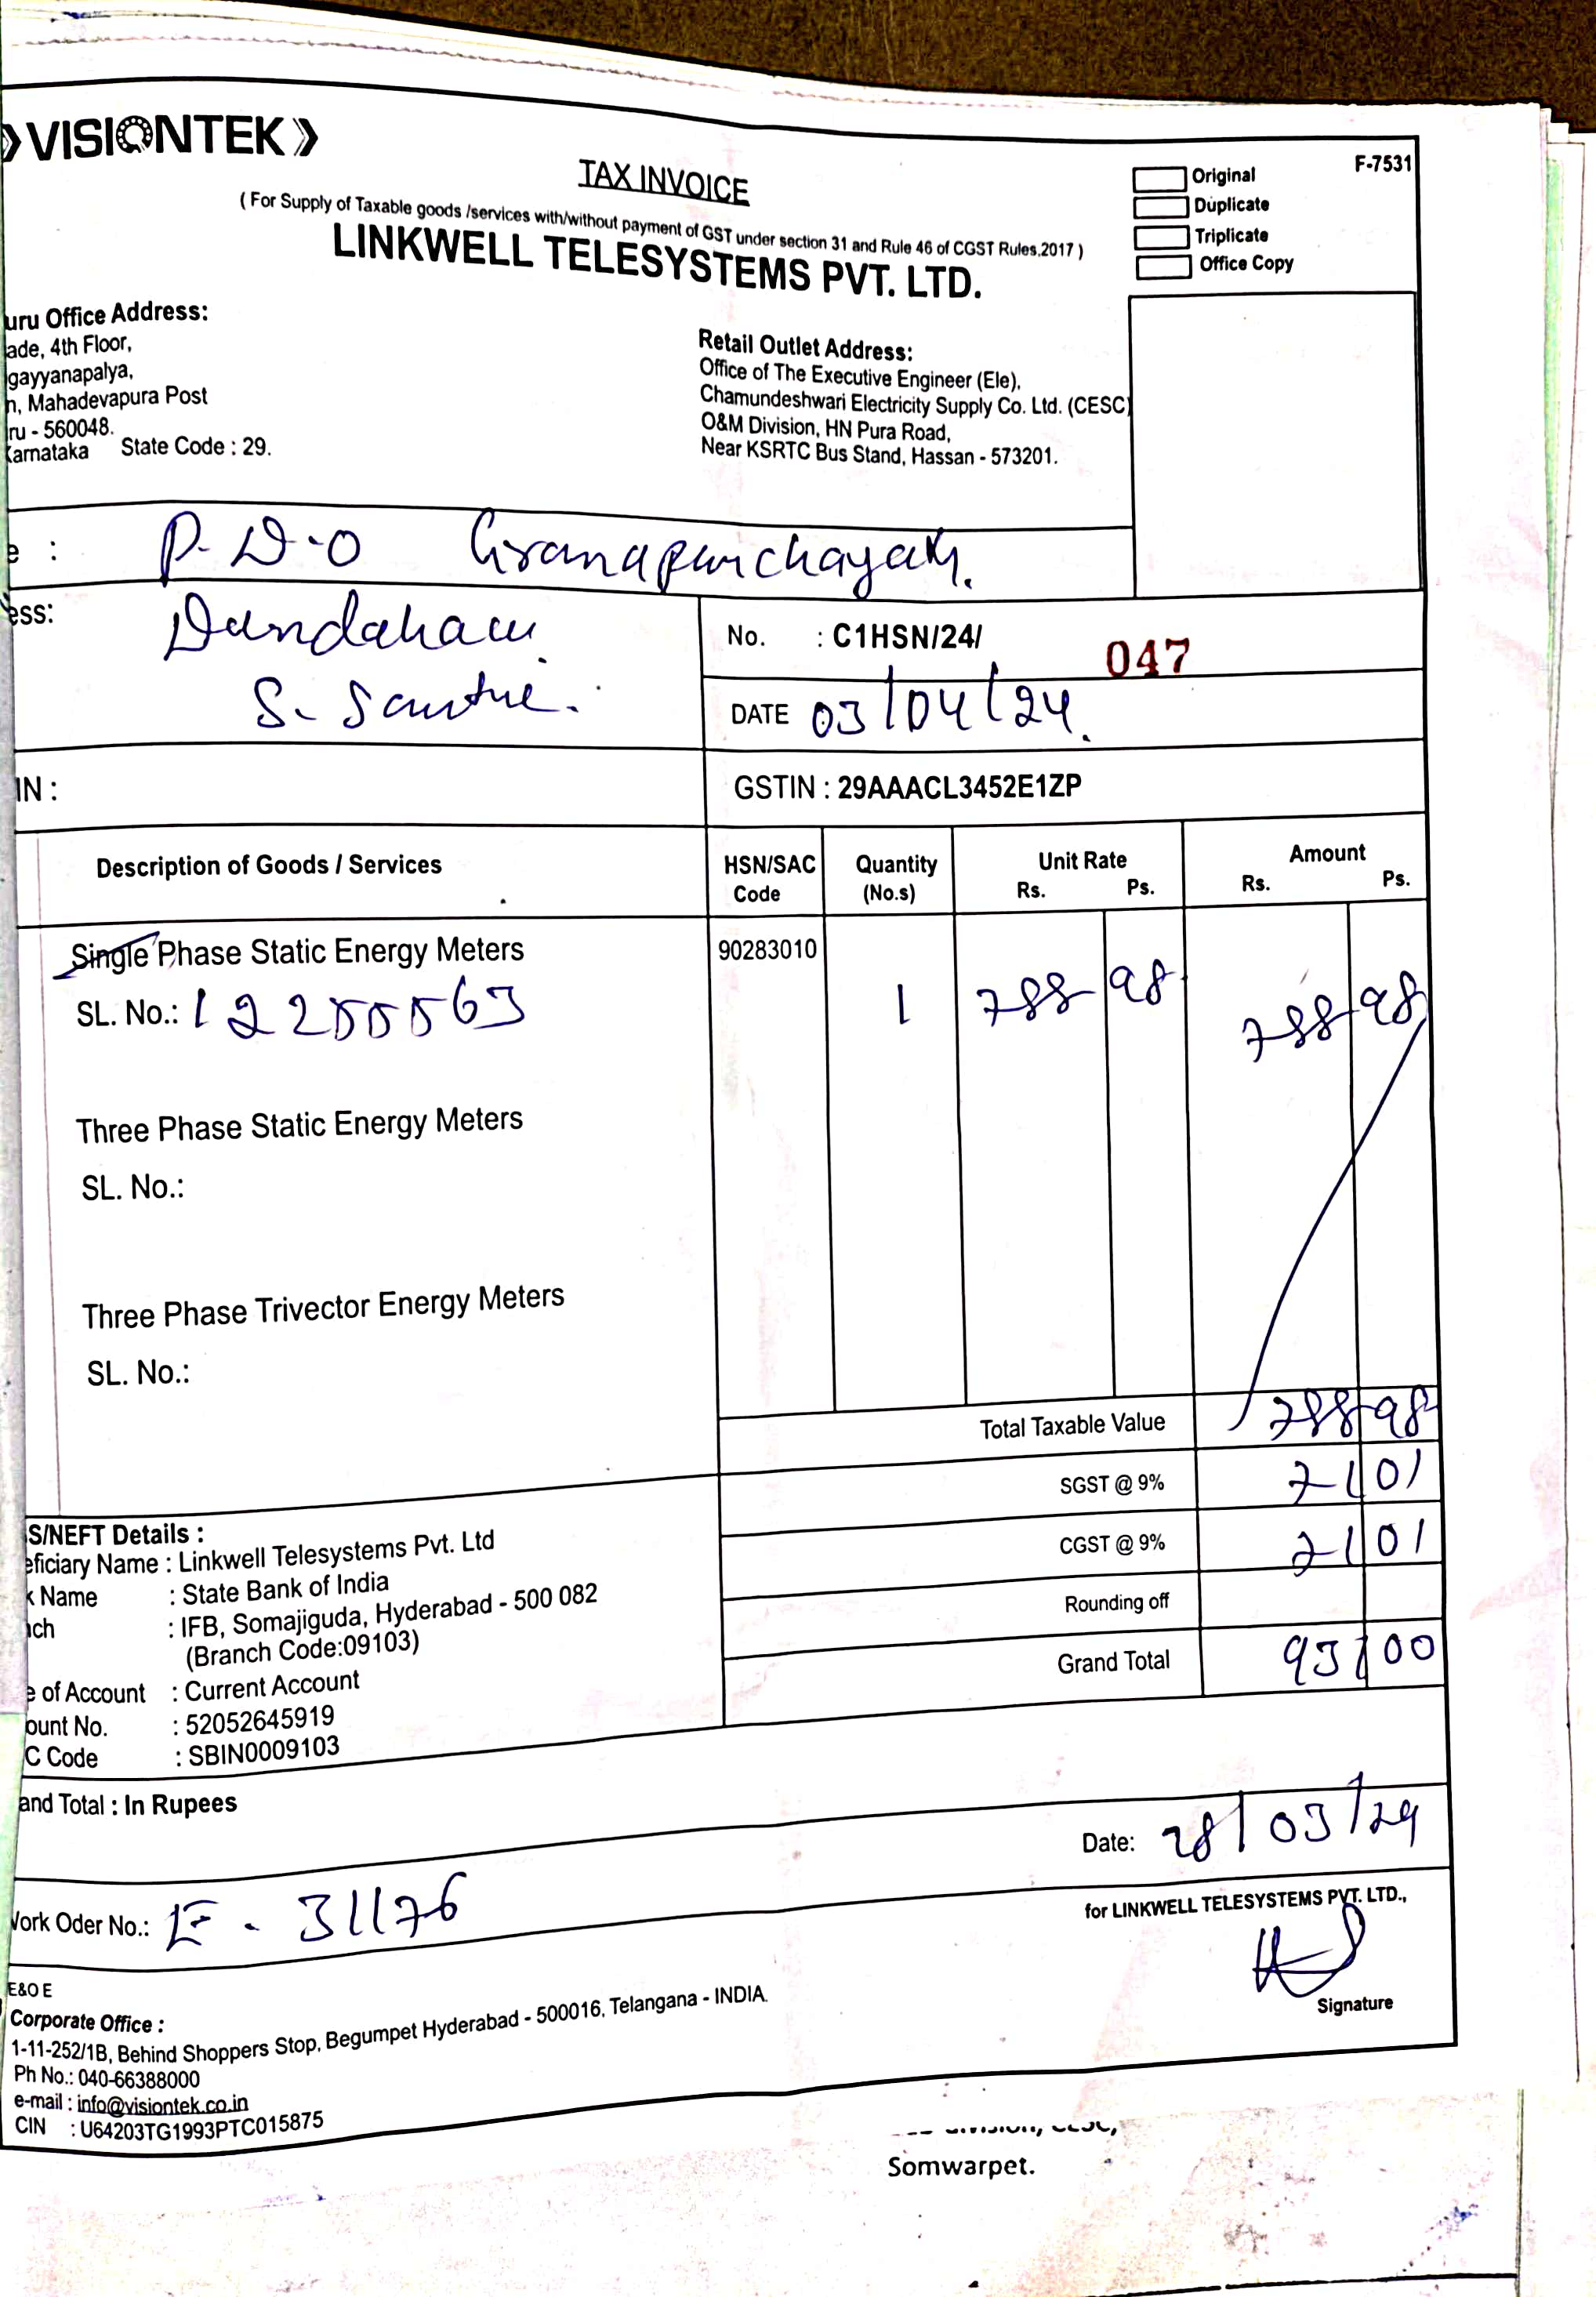 VISIONTEK
TAX INVOICE
F-7531
( For Supply of Taxable goods /services with/without payment of GST under section 31 and Rule 46 of CGST Rules,2017 )
LINKWELL TELESYSTEMS PVT. LTD.
Original
Duplicate
Triplicate
Office Copy
uru Office Address:
ade, 4th Floor,
gayyanapalya,
n, Mahadevapura Post
ru - 560048.
Karnataka State Code : 29.
Retail Outlet Address:
Office of The Executive Engineer (Ele),
Chamundeshwari Electricity Supply Co. Ltd. (CESC)
O&M Division, HN Pura Road,
Near KSRTC Bus Stand, Hassan - 573201.
e : P.D.O
ess:
No. : C1HSN/24/ 047
DATE 03/04/24.
IN :
GSTIN : 29AAACL3452E1ZP
Description of Goods / Services
HSN/SAC Code
Quantity (No.s)
Unit Rate
Rs. Ps.
Amount
Rs. Ps.
Single Phase Static Energy Meters 90283010
SL. No.: 12255563 1 788 98 788 98
Three Phase Static Energy Meters
SL. No.:
Three Phase Trivector Energy Meters
SL. No.:
Total Taxable Value 788 98
SGST @ 9% 71 01
CGST @ 9% 71 01
Rounding off
Grand Total 931 00
S/NEFT Details :
eficiary Name : Linkwell Telesystems Pvt. Ltd
k Name : State Bank of India
ch : IFB, Somajiguda, Hyderabad - 500 082
(Branch Code:09103)
e of Account : Current Account
ount No. : 52052645919
C Code : SBIN0009103
and Total : In Rupees
Date: 28/03/24
Work Oder No.: E - 31176
for LINKWELL TELESYSTEMS PVT. LTD.,
Signature
E&O E
Corporate Office :
1-11-252/1B, Behind Shoppers Stop, Begumpet Hyderabad - 500016, Telangana - INDIA.
Ph No.: 040-66388000
e-mail : info@visiontek.co.in
CIN : U64203TG1993PTC015875
Somwarpet.